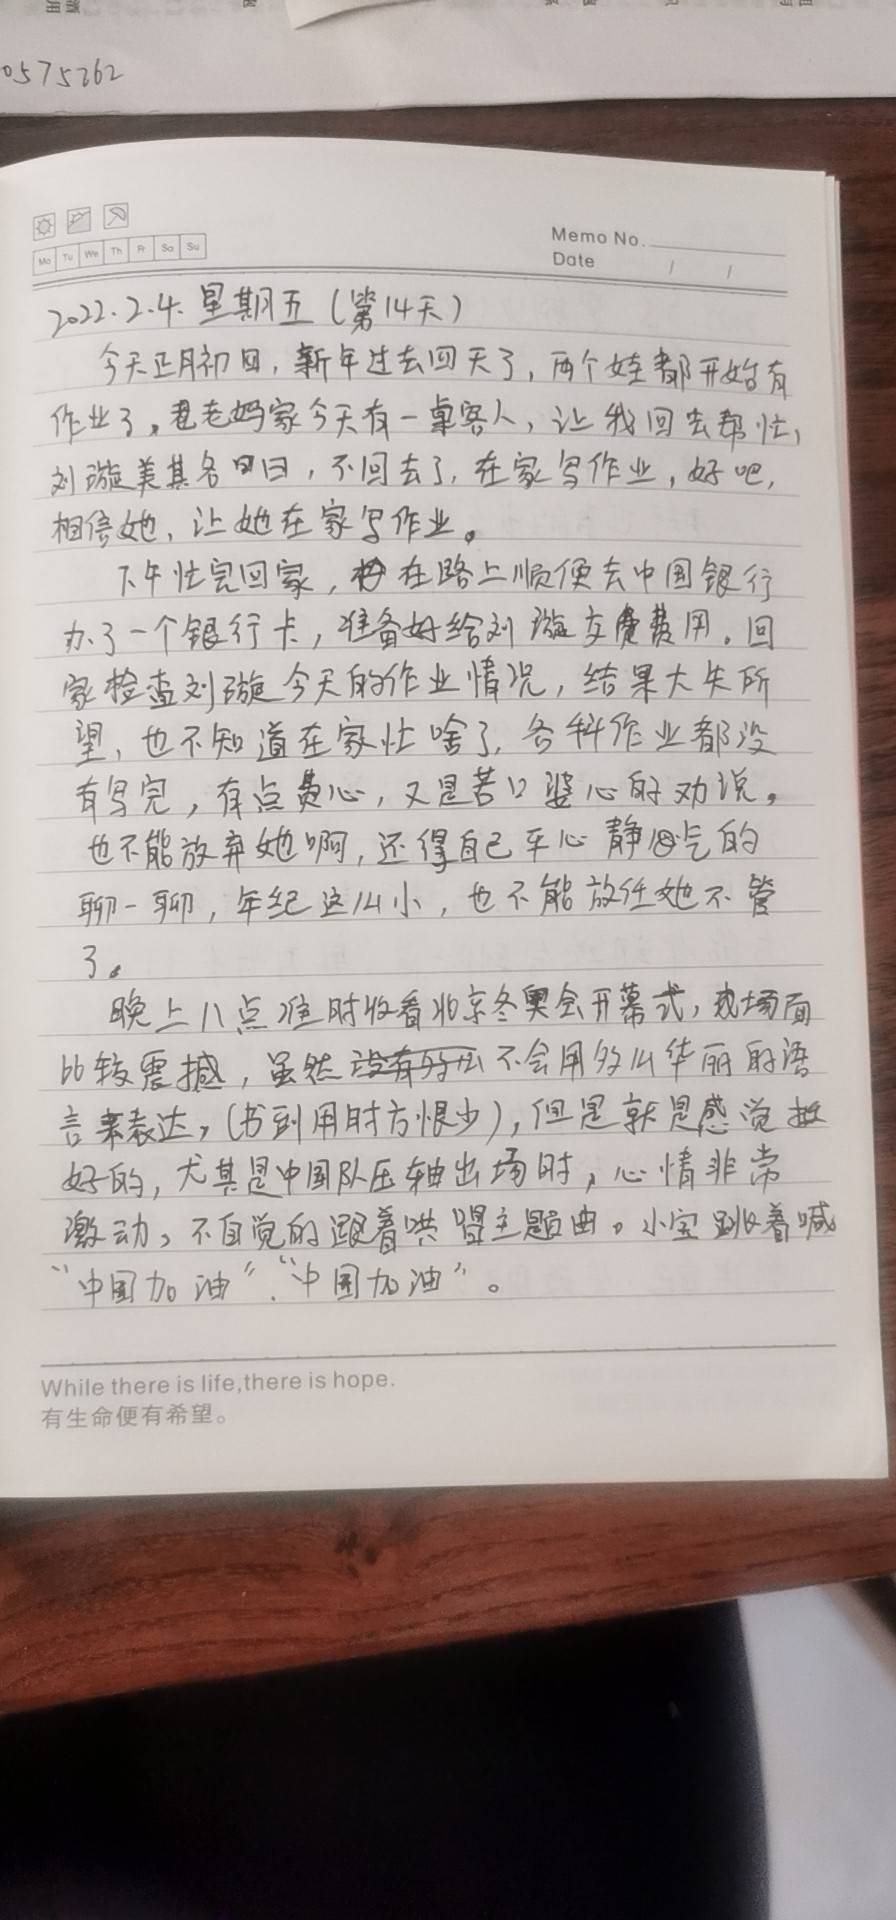 0575262
Mo Tu We Th Fr Sa Su
Memo No.
Date / /
2022.2.4. 星期五（第14天）
今天正月初四，新年过去四天了，两个娃都开始有
作业了。老妈家今天有一桌客人，让我回去帮忙，
刘璇美其名曰，不回去了，在家写作业，好吧，
相信她，让她在家写作业。
下午忙完回家，在路上顺便去中国银行
办了一个银行卡，准备好给刘璇交费用。回
家检查刘璇今天的作业情况，结果大失所
望，也不知道在家忙啥了，各科作业都没
有写完，有点费心，又是苦口婆心的劝说。
也不能放弃她啊，还得自己平心静气的
聊一聊，年纪这么小，也不能放任她不管
了。
晚上八点准时收看北京冬奥会开幕式，场面
比较震撼，虽然没有多么不会用多么华丽的语
言来表达，（书到用时方恨少），但是就是感觉挺
好的，尤其是中国队压轴出场时，心情非常
激动，不自觉的跟着哄唱主题曲。小宝跳着喊
“中国加油”、“中国加油”。
While there is life,there is hope.
有生命便有希望。